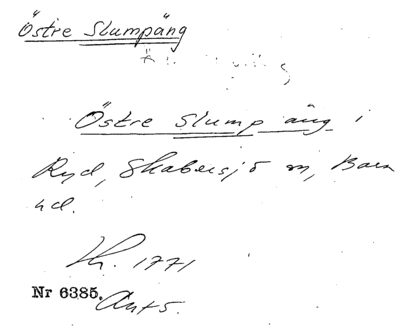 Östre Slumpäng
Östre Slump äng i
Ryd, Skabersjö sn, Bara
hd.
Kh. 1771
Nr 6385.
Ant 5.